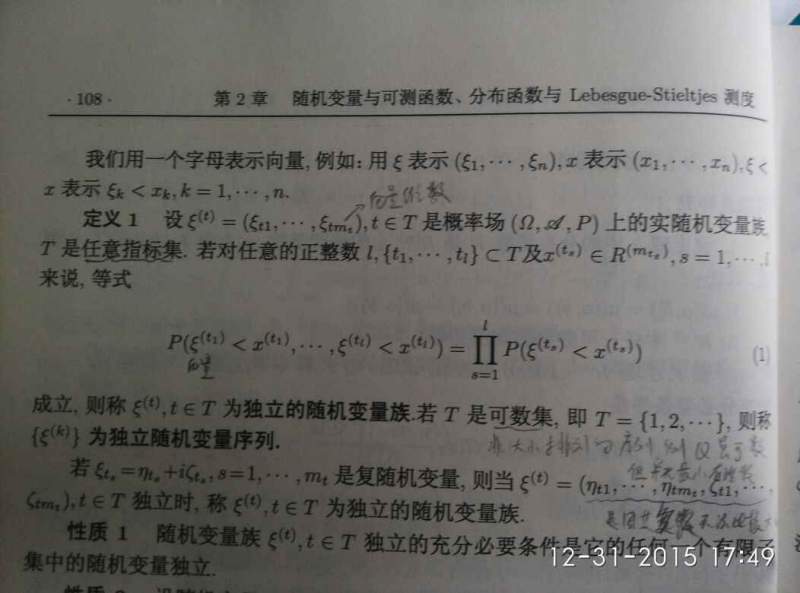 · 108 · 第 2 章 随机变量与可测函数、分布函数与 Lebesgue-Stieltjes 测度
我们用一个字母表示向量, 例如: 用 ξ 表示 (ξ₁, ⋯ , ξₙ), x 表示 (x₁, ⋯ , xₙ), ξ <
x 表示 ξₖ < xₖ, k = 1, ⋯ , n.
向量
定义 1 设 ξ^(t) = (ξ_{t1}, ⋯ , ξ_{tm_t}), t ∈ T 是概率场 (Ω, 𝒜, P) 上的实随机变量族,
T 是任意指标集. 若对任意的正整数 l, {t₁, ⋯ , t_l} ⊂ T及x^(t_s) ∈ R^(m_{t_s}), s = 1, ⋯ , l
来说, 等式
P(ξ^(t₁) < x^(t₁), ⋯ , ξ^(t_l) < x^(t_l)) = ∏_{s=1}^{l} P(ξ^(t_s) < x^(t_s)) (1)
向量
成立, 则称 ξ^(t), t ∈ T 为独立的随机变量族.若 T 是可数集, 即 T = {1, 2, ⋯}, 则称
{ξ^(k)} 为独立随机变量序列.
若 ξ_{t_s} = η_{t_s}+iζ_{t_s}, s=1, ⋯ , m_t 是复随机变量, 则当 ξ^(t) = (η_{t1}, ⋯ , η_{tm_t}, ζ_{t1}, ⋯ ,
ζ_{tm_t}), t ∈ T 独立时, 称 ξ^(t), t ∈ T 为独立的随机变量族.
性质 1 随机变量族 ξ^(t), t ∈ T 独立的充分必要条件是它的任何一个有限子
集中的随机变量独立.
12-31-2015 17:49